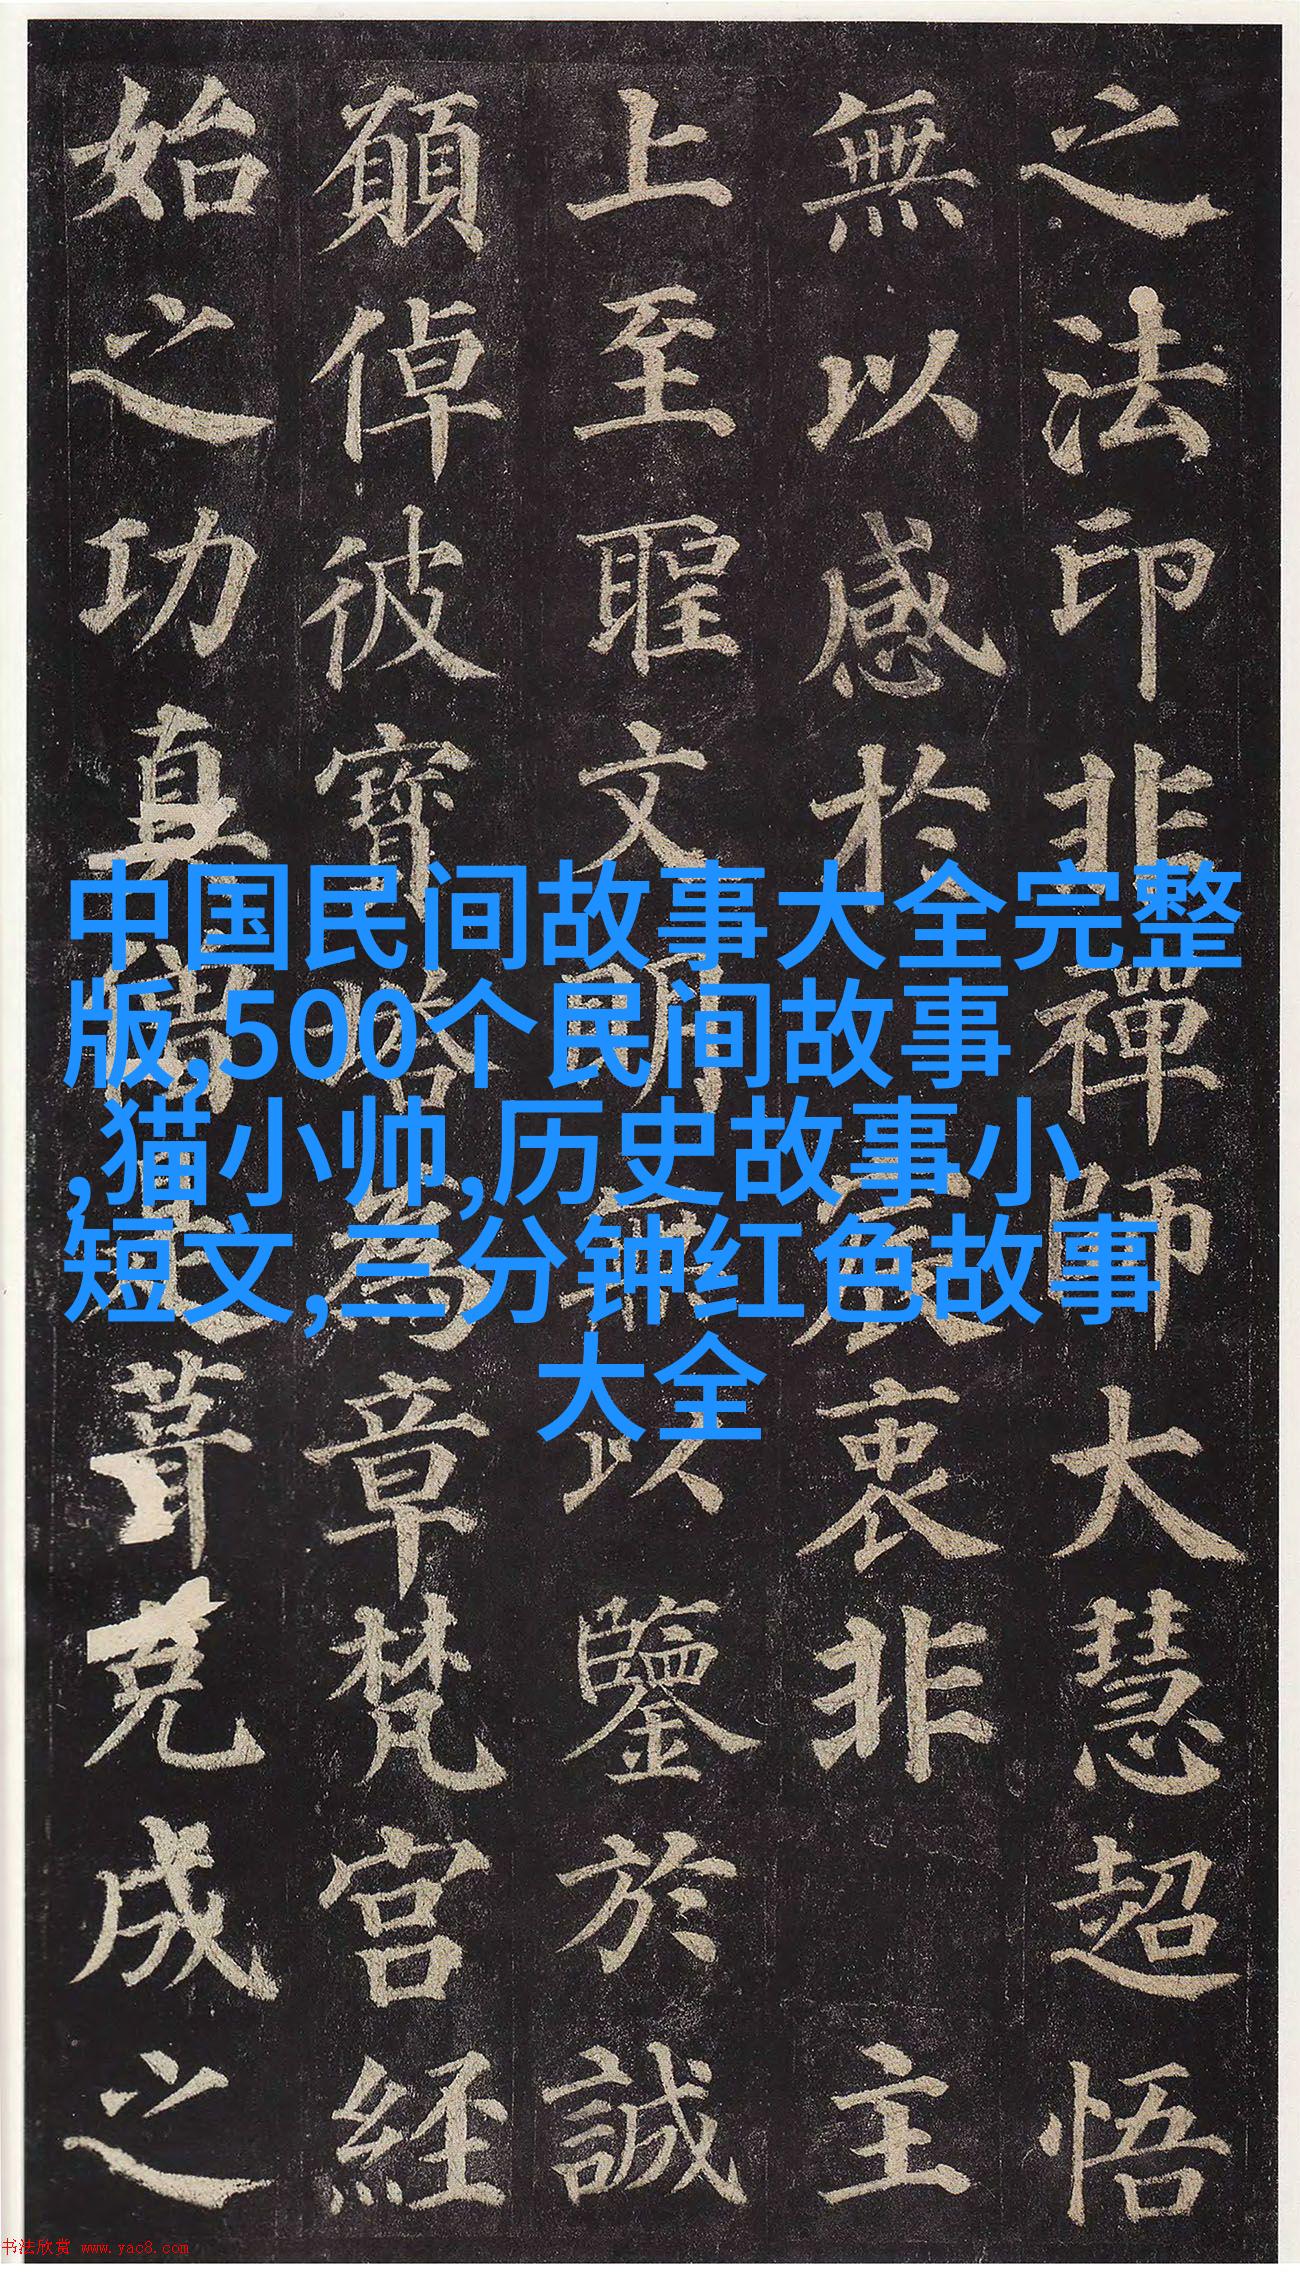 之法印非禪師大慧超悟
無以感於宸衷非主
上至聖文明無以鑒於誠
願倬彼寶塔為章梵宮経
始之功真僧是葺克成之
中国民间故事大全完整
版,500个民间故事
,猫小帅,历史故事小
短文,三分钟红色故事
大全
书法欣赏 www.yac8.com